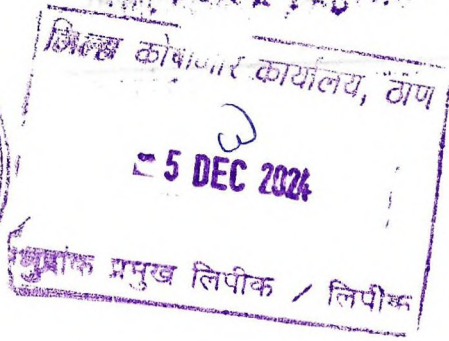 जिल्हा कोषागार कार्यालय, ठाणे
- 5 DEC 2024
मुद्रांक प्रमुख लिपीक / लिपीक